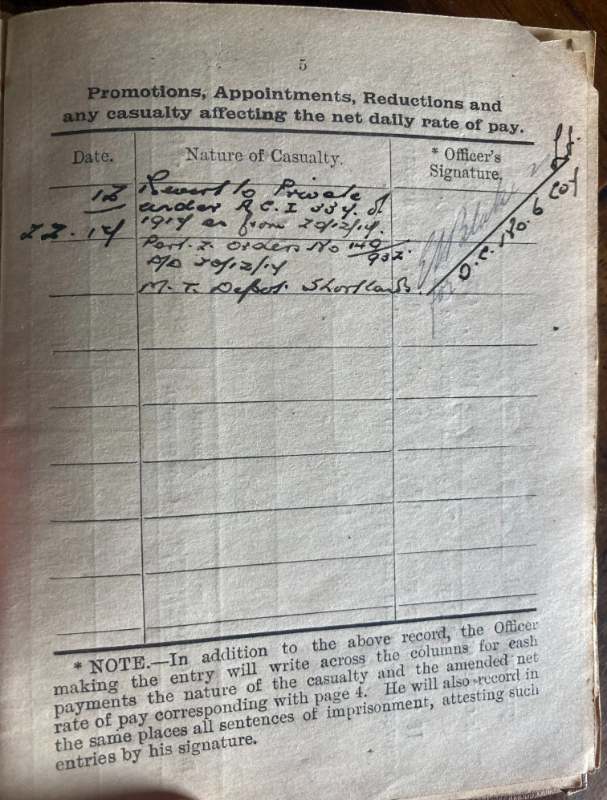 5
Promotions, Appointments, Reductions and
any casualty affecting the net daily rate of pay.
Date.
Nature of Casualty.
* Officer's
Signature.
12
22.14
Revert to Private
under A.C.I 334 of
1914 as from 20/12/14.
Part. 2. Orders No 149/932.
D/D 20/12/14
M.T. Depot. Shortlands.
for
O.C. No. 6 Coy
* NOTE.—In addition to the above record, the Officer
making the entry will write across the columns for cash
payments the nature of the casualty and the amended net
rate of pay corresponding with page 4. He will also record in
the same places all sentences of imprisonment, attesting such
entries by his signature.